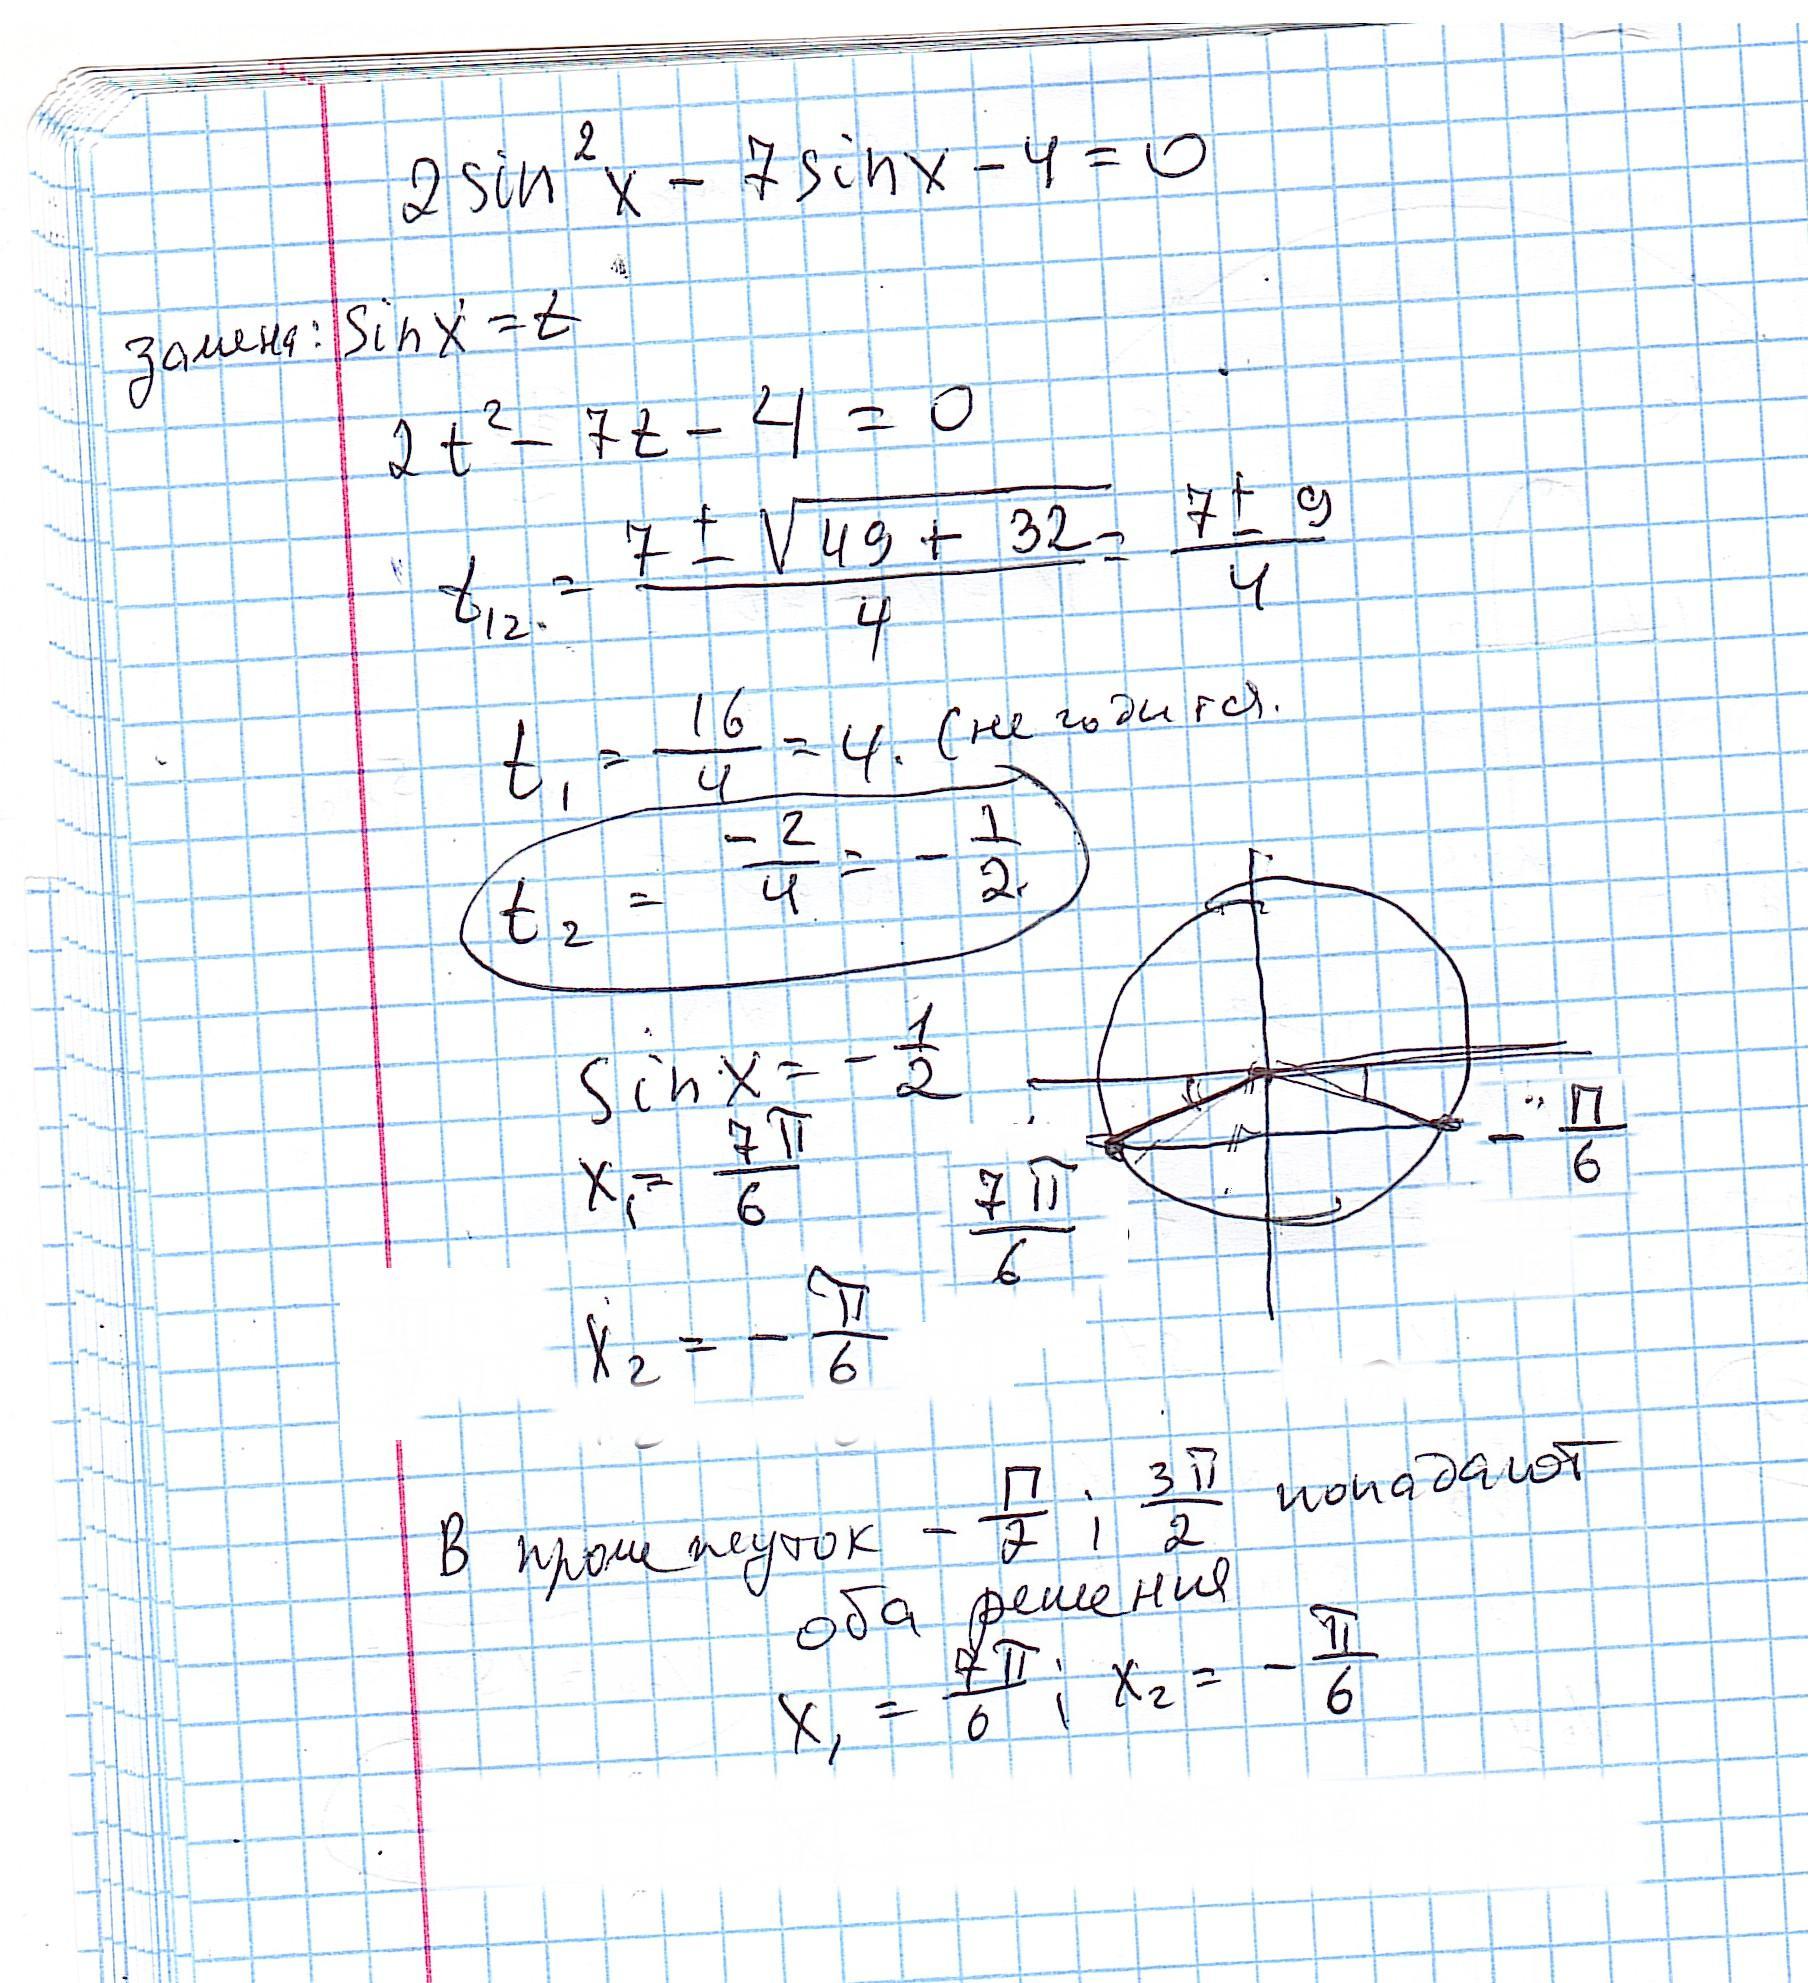 2sin²x - 7sinx - 4 = 0
замена: sinx = t
2t² - 7t - 4 = 0
t₁₂. = (7 ± √(49 + 32))/4 = (7 ± 9)/4
t₁ = 16/4 = 4. (не годится.
t₂ = -2/4 = -1/2.
sinx = -1/2
x₁ = 7π/6
7π/6
- П/6
x₂ = - π/6
В промежуток - П/2 ; 3π/2 попадают
оба решения
x₁ = 7π/6 ; x₂ = - π/6